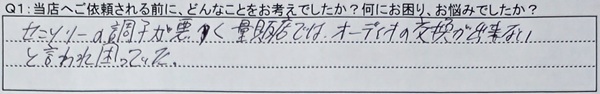 Q1:当店へご依頼される前に、どんなことをお考えでしたか？何にお困り、お悩みでしたか？
の調子が悪く量販店では、オーディオの交換が出来ない
と言われ困っていた。